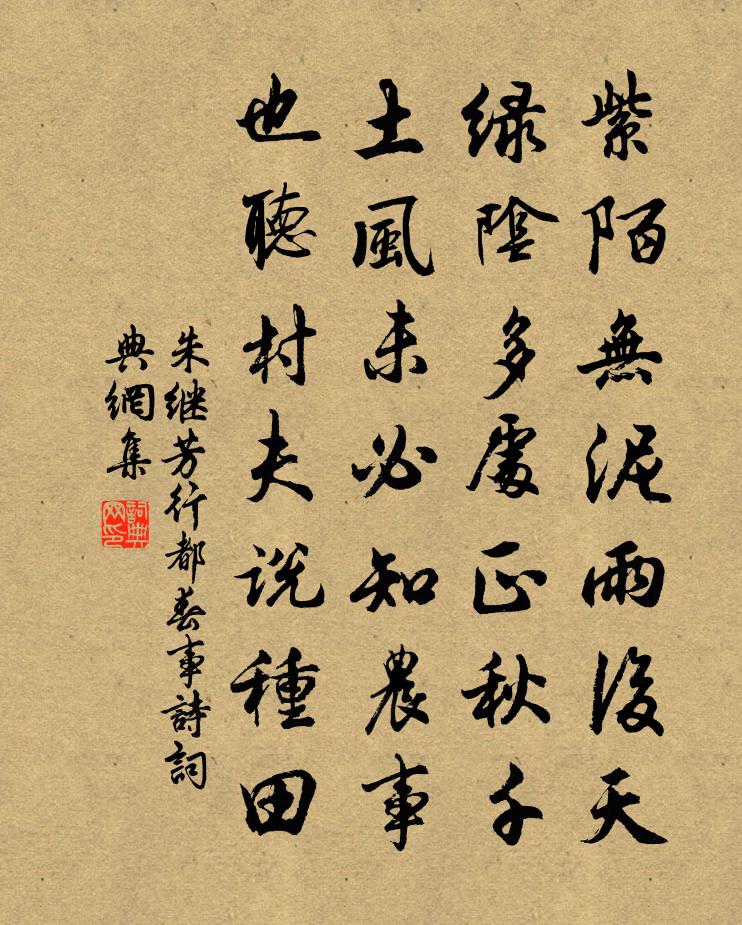 紫陌無泥雨後天
綠陰多處正秋千
土風未必知農事
也聽村夫説種田
朱继芳行都春事詩詞
典網集
詞典网印